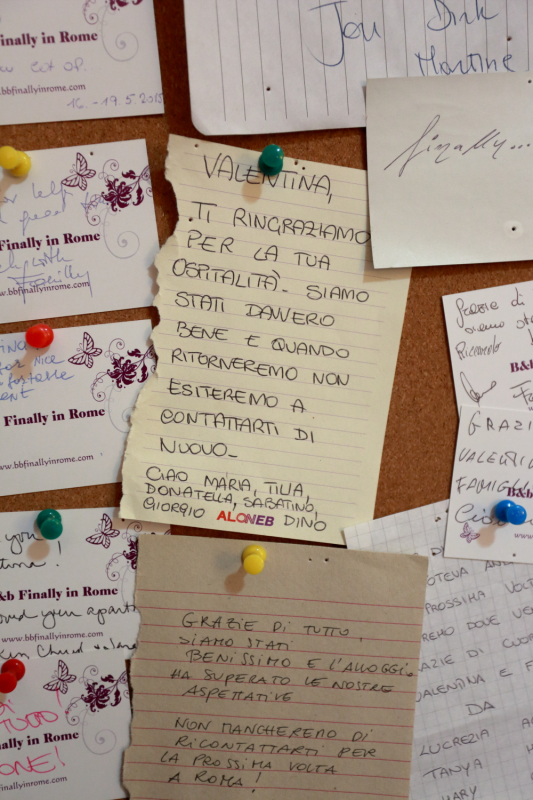 Finally in Rome
16.-19.5.2015
www.bbfinallyinrome.com
Finally in Rome
www.bbfinallyinrome.com
for nice
Finally in Rome
www.bbfinallyinrome.com
you
&b Finally in Rome
loved your
www.bbfinallyinrome.com
ally in Rome
ONE!
finallyinrome.com
Dirk
Martine
finally...
VALENTINA,
TI RINGRAZIAMO
PER LA TUA
OSPITALITÀ. SIAMO
STATI DAVVERO
BENE E QUANDO
RITORNEREMO NON
ESITEREMO A
CONTATTARTI DI
NUOVO_
CIAO MARIA, TILIA,
DONATELLA, SABATINO,
GIORGIO ALONEB DINO
GRAZIE DI TUTTO,
SIAMO STATI
BENISSIMO E L'ALLOGGIO
HA SUPERATO LE NOSTRE
ASPETTATIVE
NON MANCHEREMO DI
RICONTATTARTI PER
LA PROSSIMA VOLTA
A ROMA!
Grazie di
siamo
B&b
GRAZI
VALENTI
FAMIGL
B&b
POTEVA
PROSSIMA VOLT
REMO DOVE
AZIE DI CUOR
VALENTINA E F
DA
LUCREZIA
TANYA